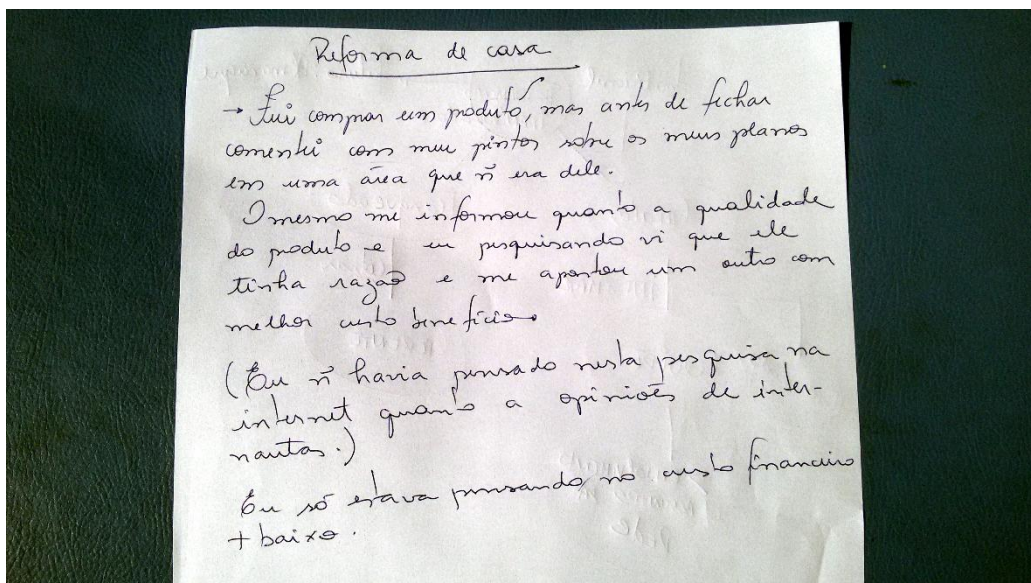 Reforma de casa
→ Fui comprar um produto, mas antes de fechar
comentei com meu pintor sobre os meus planos
em uma área que ñ era dele.
O mesmo me informou quanto a qualidade
do produto e eu pesquisando vi que ele
tinha razão e me apontou um outro com
melhor custo benefício.
(Eu ñ havia pensado nesta pesquisa na
internet quanto a opiniões de inter-
nautas.)
Eu só estava pensando no custo financeiro
+ baixo.